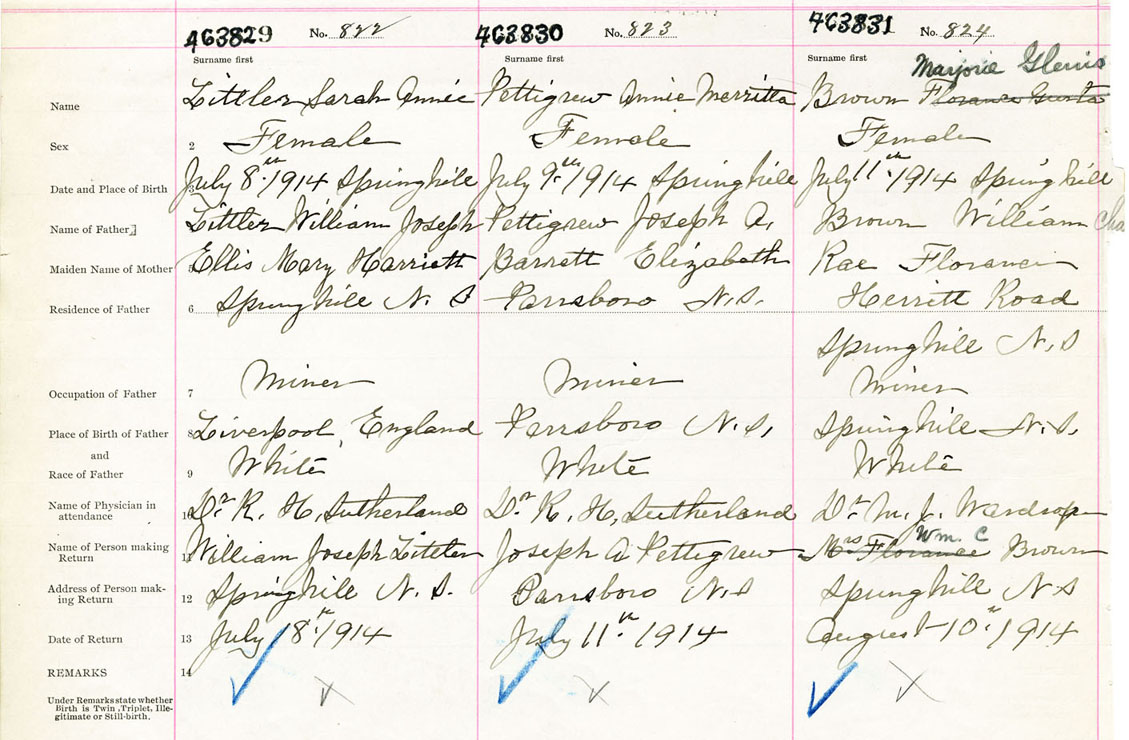 463829 No. 822 463830 No. 823 463831 No. 824
Surname first Surname first Surname first
Marjorie Glenis
Name Littler Sarah Annie Pettigrew Annie Merritta Brown Florance
Sex 2 Female Female Female
Date and Place of Birth 3 July 8th 1914 Springhill July 9th 1914 Springhill July 11th 1914 Springhill
Name of Father Littler William Joseph Pettigrew Joseph A. Brown William Cha
Maiden Name of Mother 5 Ellis Mary Harriett Barrett Elizabeth Rae Florance
Residence of Father 6 Springhill N. S Parrsboro N.S. Herrett Road
Springhill N.S
Occupation of Father 7 Miner Miner Miner
Place of Birth of Father 8 Liverpool, England Parrsboro N.S. Springhill N.S.
and
Race of Father 9 White White White
Name of Physician in attendance 10 Dr R. H. Sutherland Dr R. H. Sutherland Dr M. J. Wardrope
Wm. C
Name of Person making Return 11 William Joseph Littler Joseph A Pettigrew Mrs Florance Brown
Address of Person making Return 12 Springhill N. S. Parrsboro N.S Springhill N S
Date of Return 13 July 18th 1914 July 11th 1914 August 10th 1914
REMARKS 14
Under Remarks state whether
Birth is Twin, Triplet, Ille-
gitimate or Still-birth.